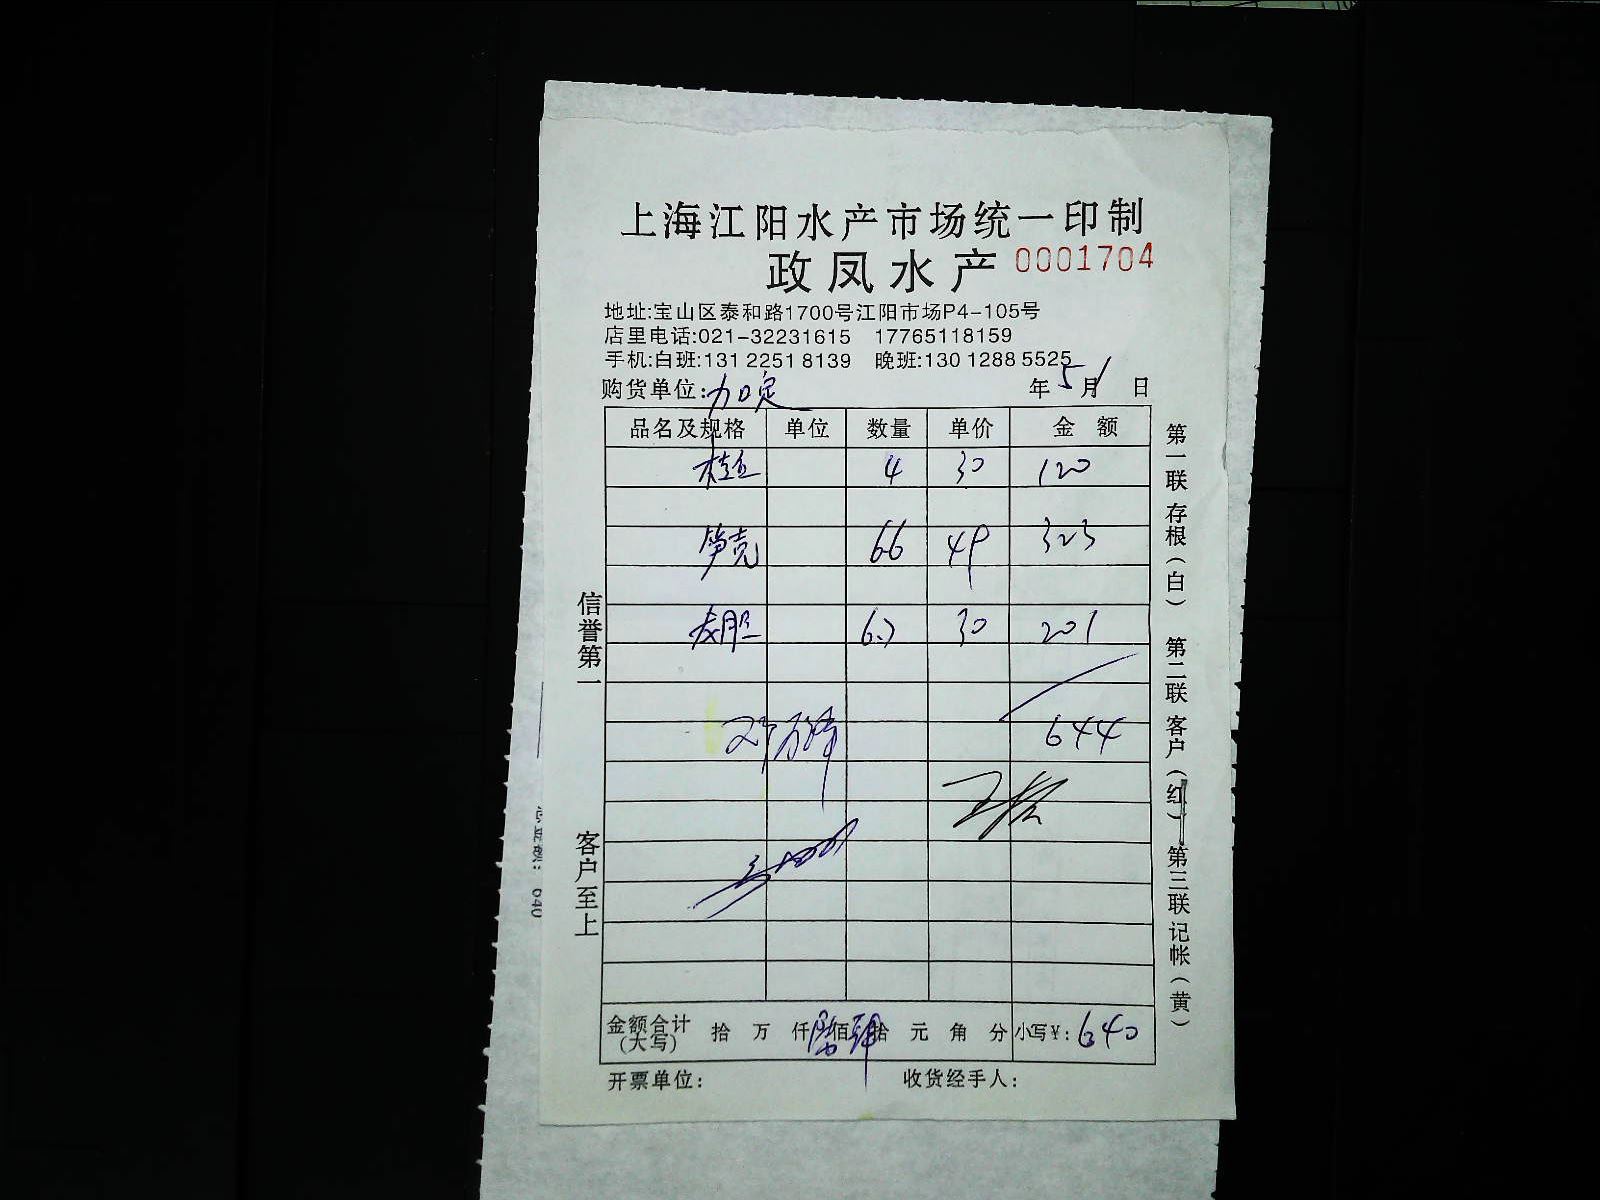 上海江阳水产市场统一印制
政凤水产 0001704
地址:宝山区泰和路1700号江阳市场P4-105号
店里电话:021-32231615 17765118159
手机:白班:131 2251 8139 晚班:130 1288 5525
购货单位:加定 年5月1日
品名及规格 单位 数量 单价 金额
4 30 120
笋壳 66 49 323
6.7 30 201
644
金额合计(大写) 拾万仟陆佰肆拾元角分 小写¥:640
开票单位: 收货经手人:
信誉第一
客户至上
第一联存根(白) 第二联客户(红) 第三联记帐(黄)